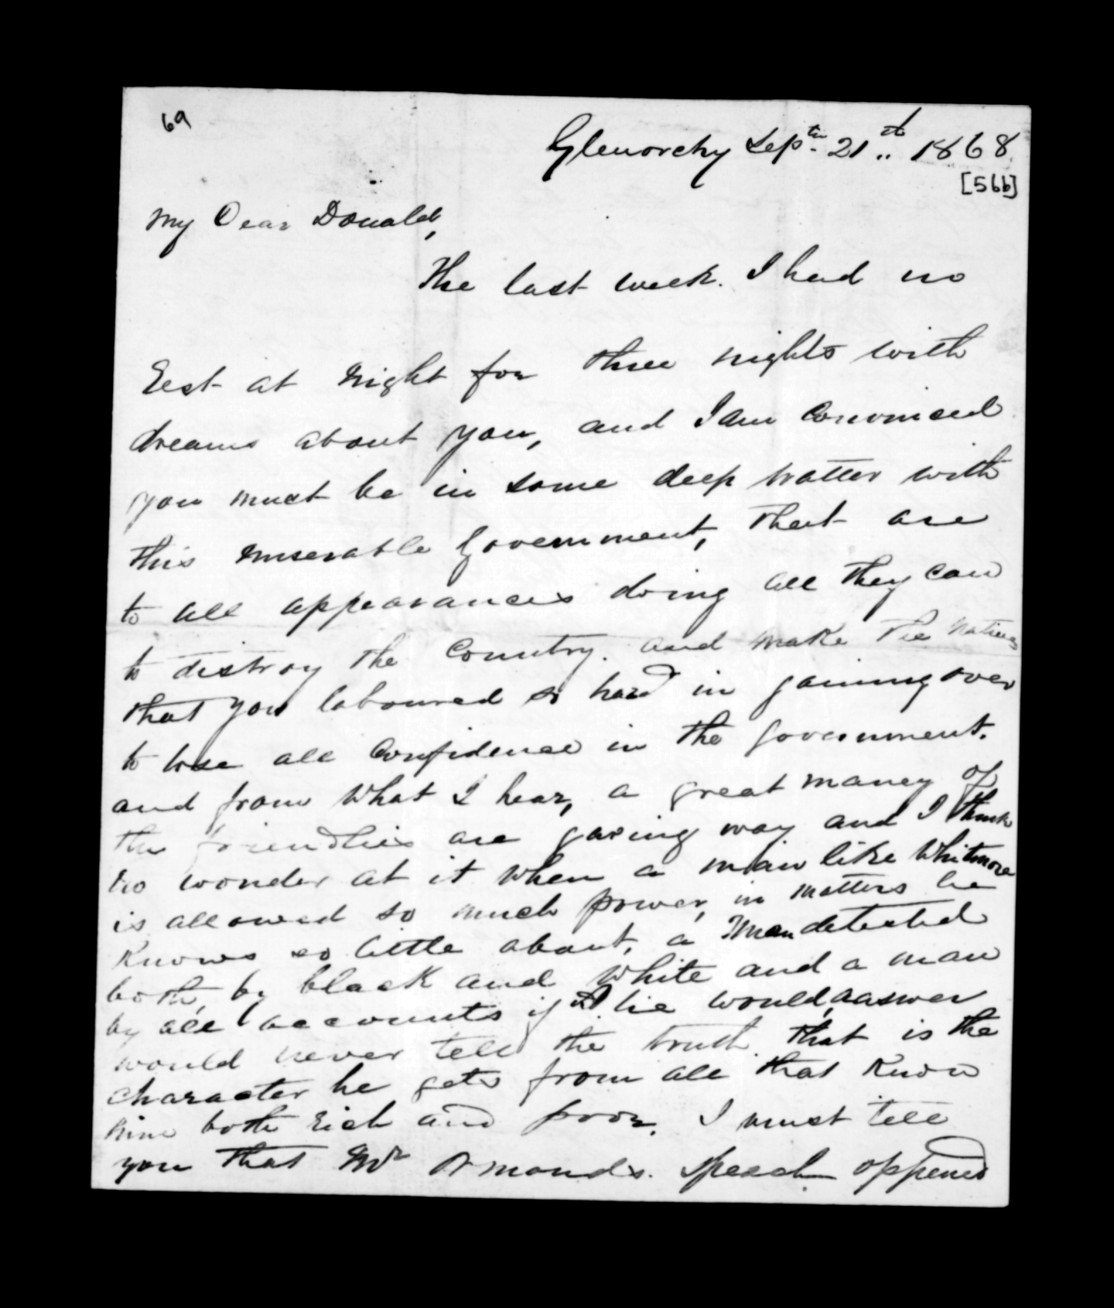 69
Glenorchy Septr 21st 1868
[566]
My Dear Donald,
The last week. I had no
Rest at Night for three nights with
dreams about you, and I am Convinced
you must be in some deep watter with
this Miserable Government, that are
to all appearances doing all they Can
to distroy the Country. and make the natives
that you laboured so hard in gaining over
to lose all Confidence in the government.
and from what I hear, a great maney of
the friendlies are gaving way and I think
no wonder at it when a man like Whitmore
is allowed so much power, in matters he
Knows so little about, a Man detested
both, by black and White and a man
by all accounts if a lie would, answer
would never tell the truth that is the
character he gets from all that Know
him both Rich and poor. I must tell
you that Mr Ormonds. Speach oppened